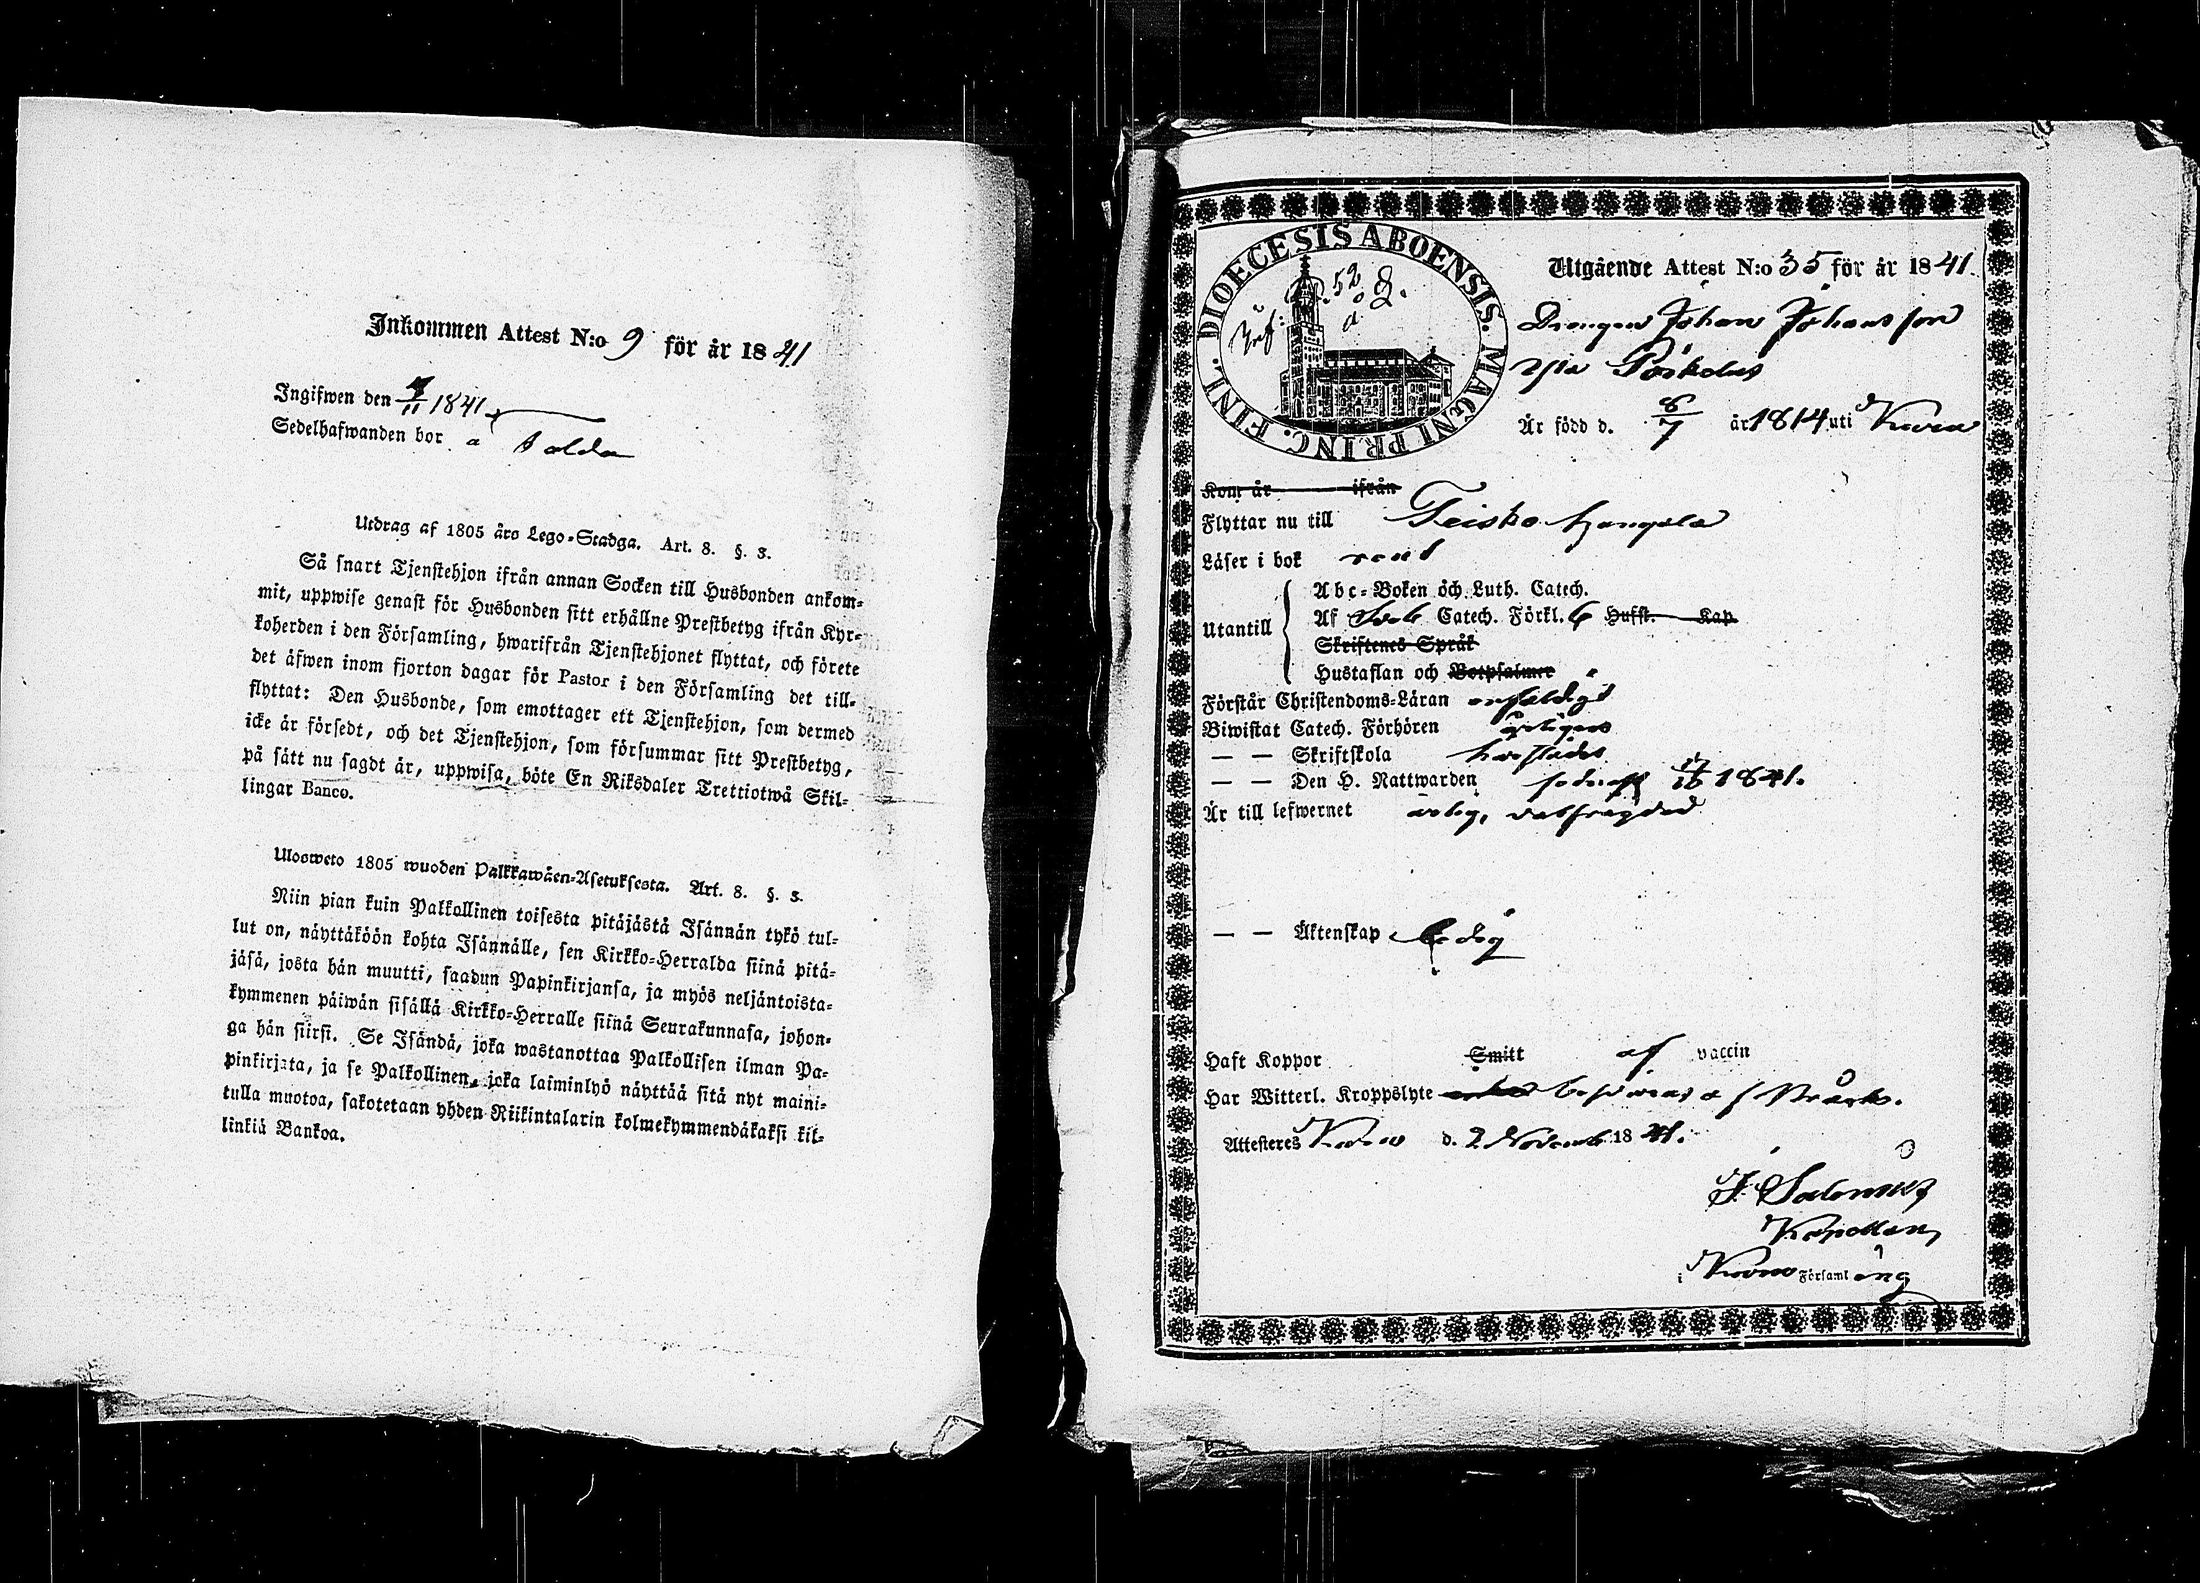 Inkommen Attest N:o 9 för år 1841
Ingifwen den 4/11 1841
Sedelhafwanden bor a Tolda
Utdrag af 1805 års Lego-Stadga. Art. 8. §. 3.
Så snart Tjenstehjon ifrån annan Socken till Husbonden ankom-
mit, uppwise genast för Husbonden sitt erhållne Prestbetyg ifrån Kyr-
koherden i den Församling, hwarifrån Tjenstehjonet flyttat, och förete
det äfwen inom fjorton dagar för Pastor i den Församling det till-
flyttat: Den Husbonde, som emottager ett Tjenstehjon, som dermed
icke är försedt, och det Tjenstehjon, som försummar sitt Prestbetyg,
på sätt nu sagdt är, uppwisa, böte En Riksdaler Trettiotwå Skil-
lingar Banco.
Ulosweto 1805 wuoden Palkkawäen-Asetuksesta. Art. 8. §. 3.
Niin pian kuin Palkollinen toisesta pitäjästä Isännän tykö tul-
lut on, näyttäköön kohta Isännälle, sen Kirkko-Herralda siinä pitä-
jäsä, josta hän muutti, saadun Papinkirjansa, ja myös neljäntoista-
kymmenen päiwän sisällä Kirkko-Herralle siinä Seurakunnasa, johon-
ga hän siirsi. Se Isändä, joka wastanottaa Palkollisen ilman Pa-
pinkirjata, ja se Palkollinen, joka laiminlyö näyttää sitä nyt maini-
tulla muotoa, sakotetaan yhden Riikintalarin kolmekymmendäkaksi kil-
linkiä Bankoa.
DIOECESIS ABOENSIS. MAGNI PRINC. FINL.
52
Utgående Attest N:o 35 för år 1841.
Drengen Johan Johansson
Är född d. 8/7 år 1814 uti
Kom år ifrån
Flyttar nu till Teisko
Läser i bok rent
Utantill
Abc-Boken och Luth. Catech.
Af Catech. Förkl. 6 Hufst. Kap.
Skriftenes Språk
Hustaflan och Botpsalmer
Förstår Christendoms-Läran enfaldigt
Biwistat Catech. Förhören årligen
— — Skriftskola
— — Den H. Nattwarden sednast 17/10 1841.
Är till lefwernet ärlig, välfrägdad
— — Äktenskap Ledig
Haft Koppor Smitt af vaccin
Har Witterl. Kroppslyte
Attesteres d. 2 Novemb. 1841.
J. Salenius
Kapellan
i Församling